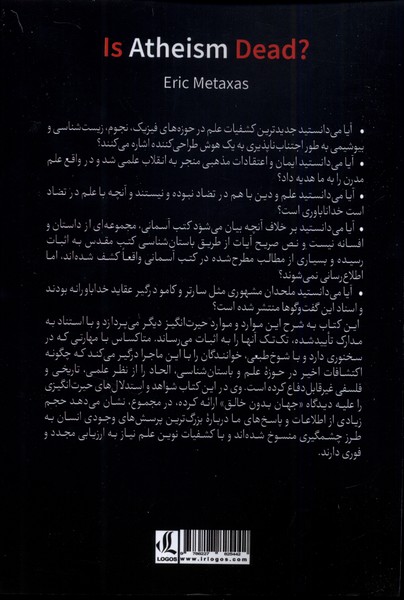 Is Atheism Dead?
Eric Metaxas
• آیا می‌دانستید جدیدترین کشفیات علم در حوزه‌های فیزیک، نجوم، زیست‌شناسی و
بیوشیمی به طور اجتناب‌ناپذیری به یک هوش طراحی‌کننده اشاره می‌کنند؟
• آیا می‌دانستید ایمان و اعتقادات مذهبی منجر به انقلاب علمی شد و در واقع علم
مدرن را به ما هدیه داد؟
• آیا می‌دانستید علم و دین با هم در تضاد نبوده و نیستند و آنچه با علم در تضاد
است خداناباوری است؟
• آیا می‌دانستید بر خلاف آنچه بیان می‌شود کتب آسمانی، مجموعه‌ای از داستان و
افسانه نیست و نص صریح آیات از طریق باستان‌شناسی کتب مقدس به اثبات
رسیده و بسیاری از مطالب مطرح‌شده در کتب آسمانی واقعاً کشف شده‌اند، اما
اطلاع‌رسانی نمی‌شوند؟
• آیا می‌دانستید ملحدان مشهوری مثل سارتر و کامو درگیر عقاید خداباورانه بودند
و اسناد این گفت‌وگوها منتشر شده است؟
این کتاب به شرح این موارد و موارد حیرت‌انگیز دیگر می‌پردازد و با استناد به
مدارک تأییدشده، تک‌تک آنها را به اثبات می‌رساند. متاکساس با مهارتی که در
سخنوری دارد و با شوخ‌طبعی، خوانندگان را با این ماجرا درگیر می‌کند که چگونه
اکتشافات اخیر در حوزهٔ علم و باستان‌شناسی، الحاد را از نظر علمی، تاریخی و
فلسفی غیرقابل‌دفاع کرده است. وی در این کتاب شواهد و استدلال‌های حیرت‌انگیزی
را علیه دیدگاه «جهان بدون خالق» ارائه کرده، در مجموع، نشان می‌دهد حجم
زیادی از اطلاعات و پاسخ‌های ما دربارهٔ بزرگ‌ترین پرسش‌های وجودی انسان به
طرز چشمگیری منسوخ شده‌اند و با کشفیات نوین علم نیاز به ارزیابی مجدد و
فوری دارند.
LOGOS
9 786227 825442
www.irlogos.com